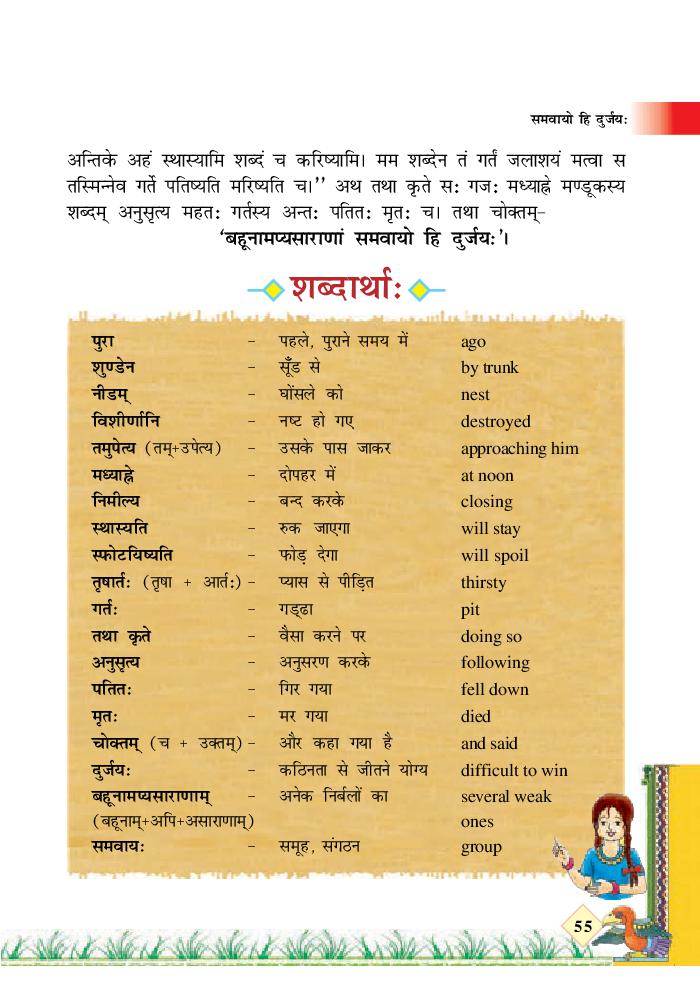 समवायो हि दुर्जयः
अन्तिके अहं स्थास्यामि शब्दं च करिष्यामि। मम शब्देन तं गर्तं जलाशयं मत्वा स
तस्मिन्नेव गर्ते पतिष्यति मरिष्यति च।'' अथ तथा कृते सः गजः मध्याह्ने मण्डूकस्य
शब्दम् अनुसृत्य महतः गर्तस्य अन्तः पतितः मृतः च। तथा चोक्तम्–
'बहूनामप्यसाराणां समवायो हि दुर्जयः'।
शब्दार्थाः
पुरा – पहले, पुराने समय में ago
शुण्डेन – सूँड से by trunk
नीडम् – घोंसले को nest
विशीर्णानि – नष्ट हो गए destroyed
तमुपेत्य (तम्+उपेत्य) – उसके पास जाकर approaching him
मध्याह्ने – दोपहर में at noon
निमील्य – बन्द करके closing
स्थास्यति – रुक जाएगा will stay
स्फोटयिष्यति – फोड़ देगा will spoil
तृषार्तः (तृषा + आर्तः) – प्यास से पीड़ित thirsty
गर्तः – गड्ढा pit
तथा कृते – वैसा करने पर doing so
अनुसृत्य – अनुसरण करके following
पतितः – गिर गया fell down
मृतः – मर गया died
चोक्तम् (च + उक्तम्) – और कहा गया है and said
दुर्जयः – कठिनता से जीतने योग्य difficult to win
बहूनामप्यसाराणाम् – अनेक निर्बलों का several weak
(बहूनाम्+अपि+असाराणाम्) ones
समवायः – समूह, संगठन group
55